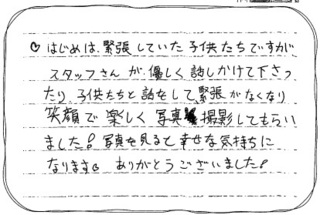 ♡はじめは、緊張していた子供たちですが
スタッフさんが、優しく話しかけて下さっ
たり、子供たちと話をして、緊張がなくなり
笑顔で楽しく写真撮影してもらい
ました!写真を見ると幸せな気持ちに
なります♡ ありがとうございました!